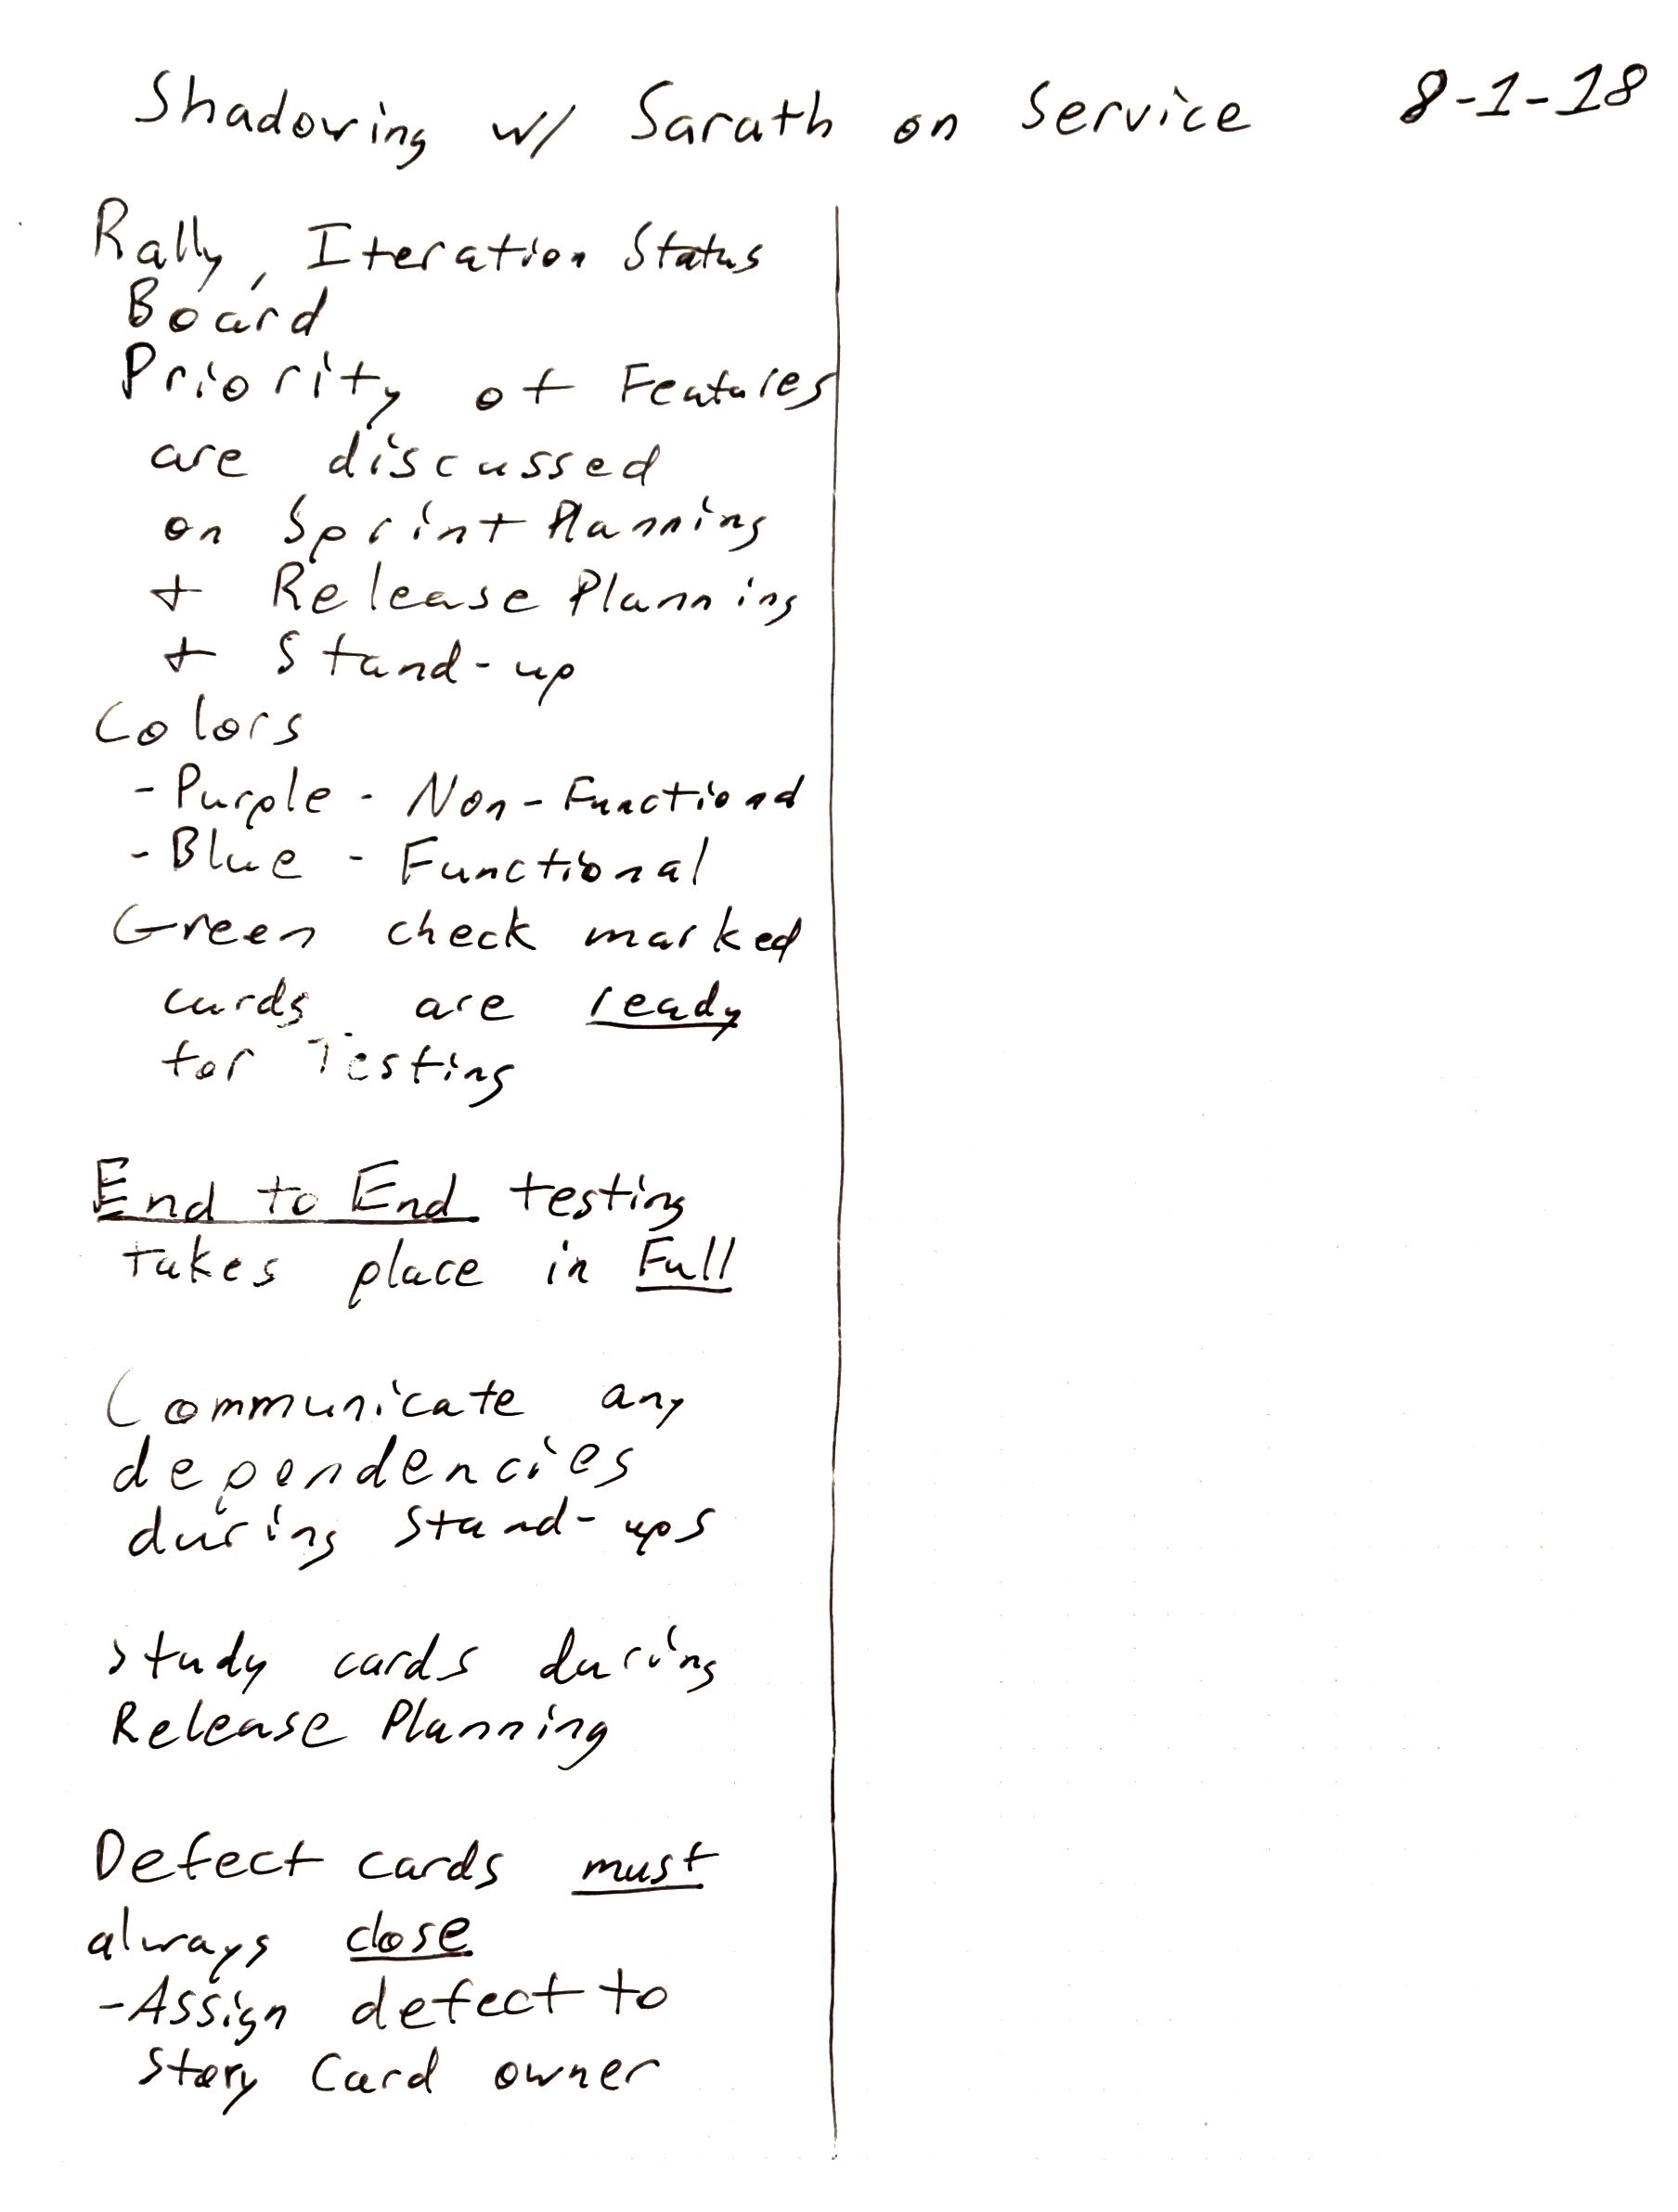 Shadowing w/ Sarath on Service 8-1-18
Rally, Iteration Status
Board
Priority of Features
are discussed
on Sprint Planning
+ Release Planning
+ Stand-up
Colors
- Purple - Non-Functional
- Blue - Functional
Green check marked
cards are ready
for Testing
End to End testing
takes place in Full
Communicate any
dependencies
during stand-ups
Study cards during
Release Planning
Defect cards must
always close
- Assign defect to
Story Card owner